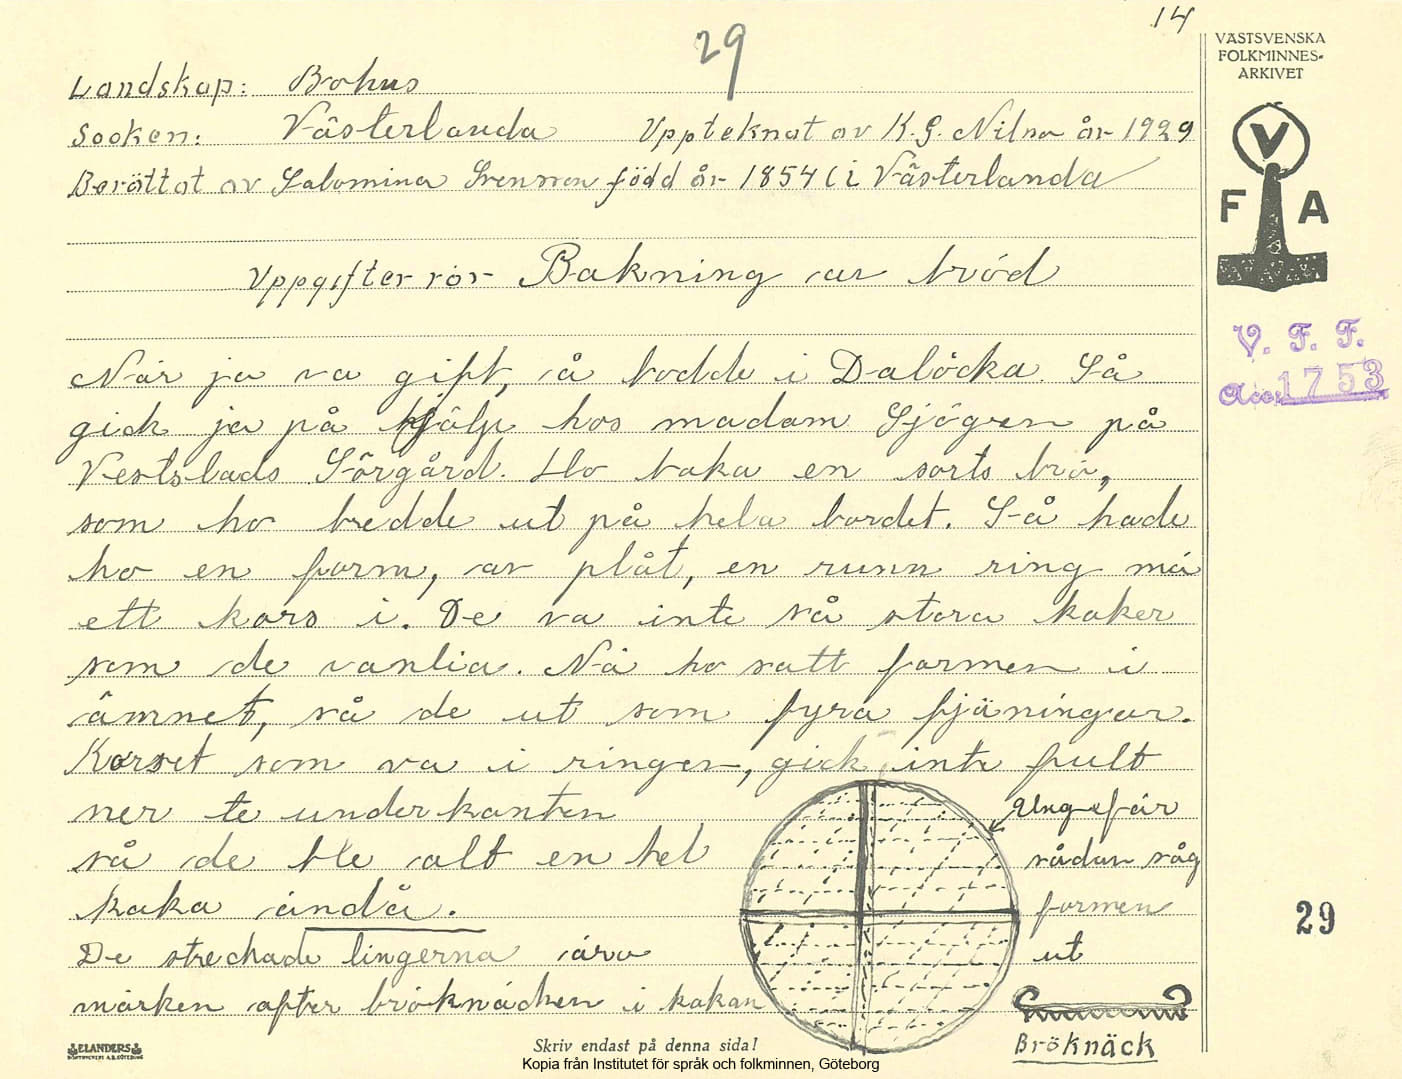 14
29
VÄSTSVENSKA
FOLKMINNES-
ARKIVET
Landskap: Bohus
Socken: Västerlanda Uppteknat av K. G. Nilson år 1929
Berättat av Salomina Svensson född år 1854 i Västerlanda
V
F A
Uppgifter rör Bakning av bröd
V. F. F.
Acc: 1753
När ja va gift, å bodde i Dalöcka. Så
gick ja på hjälp hos madam Sjögren på
Vestslads Sörgård. Ho baka en sorts brö,
som ho bredde ut på hela bordet. Så hade
ho en form, av plåt, en runn ring mä
ett kors i. De va inte så stora kaker
som de vanlia. Nä ho satt formen i
ämnet, så de ut som fyra fjäningar.
Korset som va i ringen, gick inte fullt
ner te underkanten
så de ble alt en hel
kaka ändå.
De streckade lingerna äro
märken after bröknäcken i kakan
Ungefär
sådan såg
formen
ut
Bröknäck
29
ELANDERS
BOKTRYCKERI A.B. GÖTEBORG
Skriv endast på denna sida!
Kopia från Institutet för språk och folkminnen, Göteborg